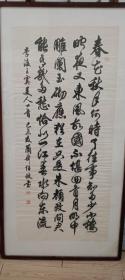 春花秋月何時了往事知多少小樓
昨夜又東風故國不堪回首月明中
雕闌玉砌應猶在只是朱顏改問君
能有幾多愁恰似一江春水向東流
李後主虞美人一首 任政書